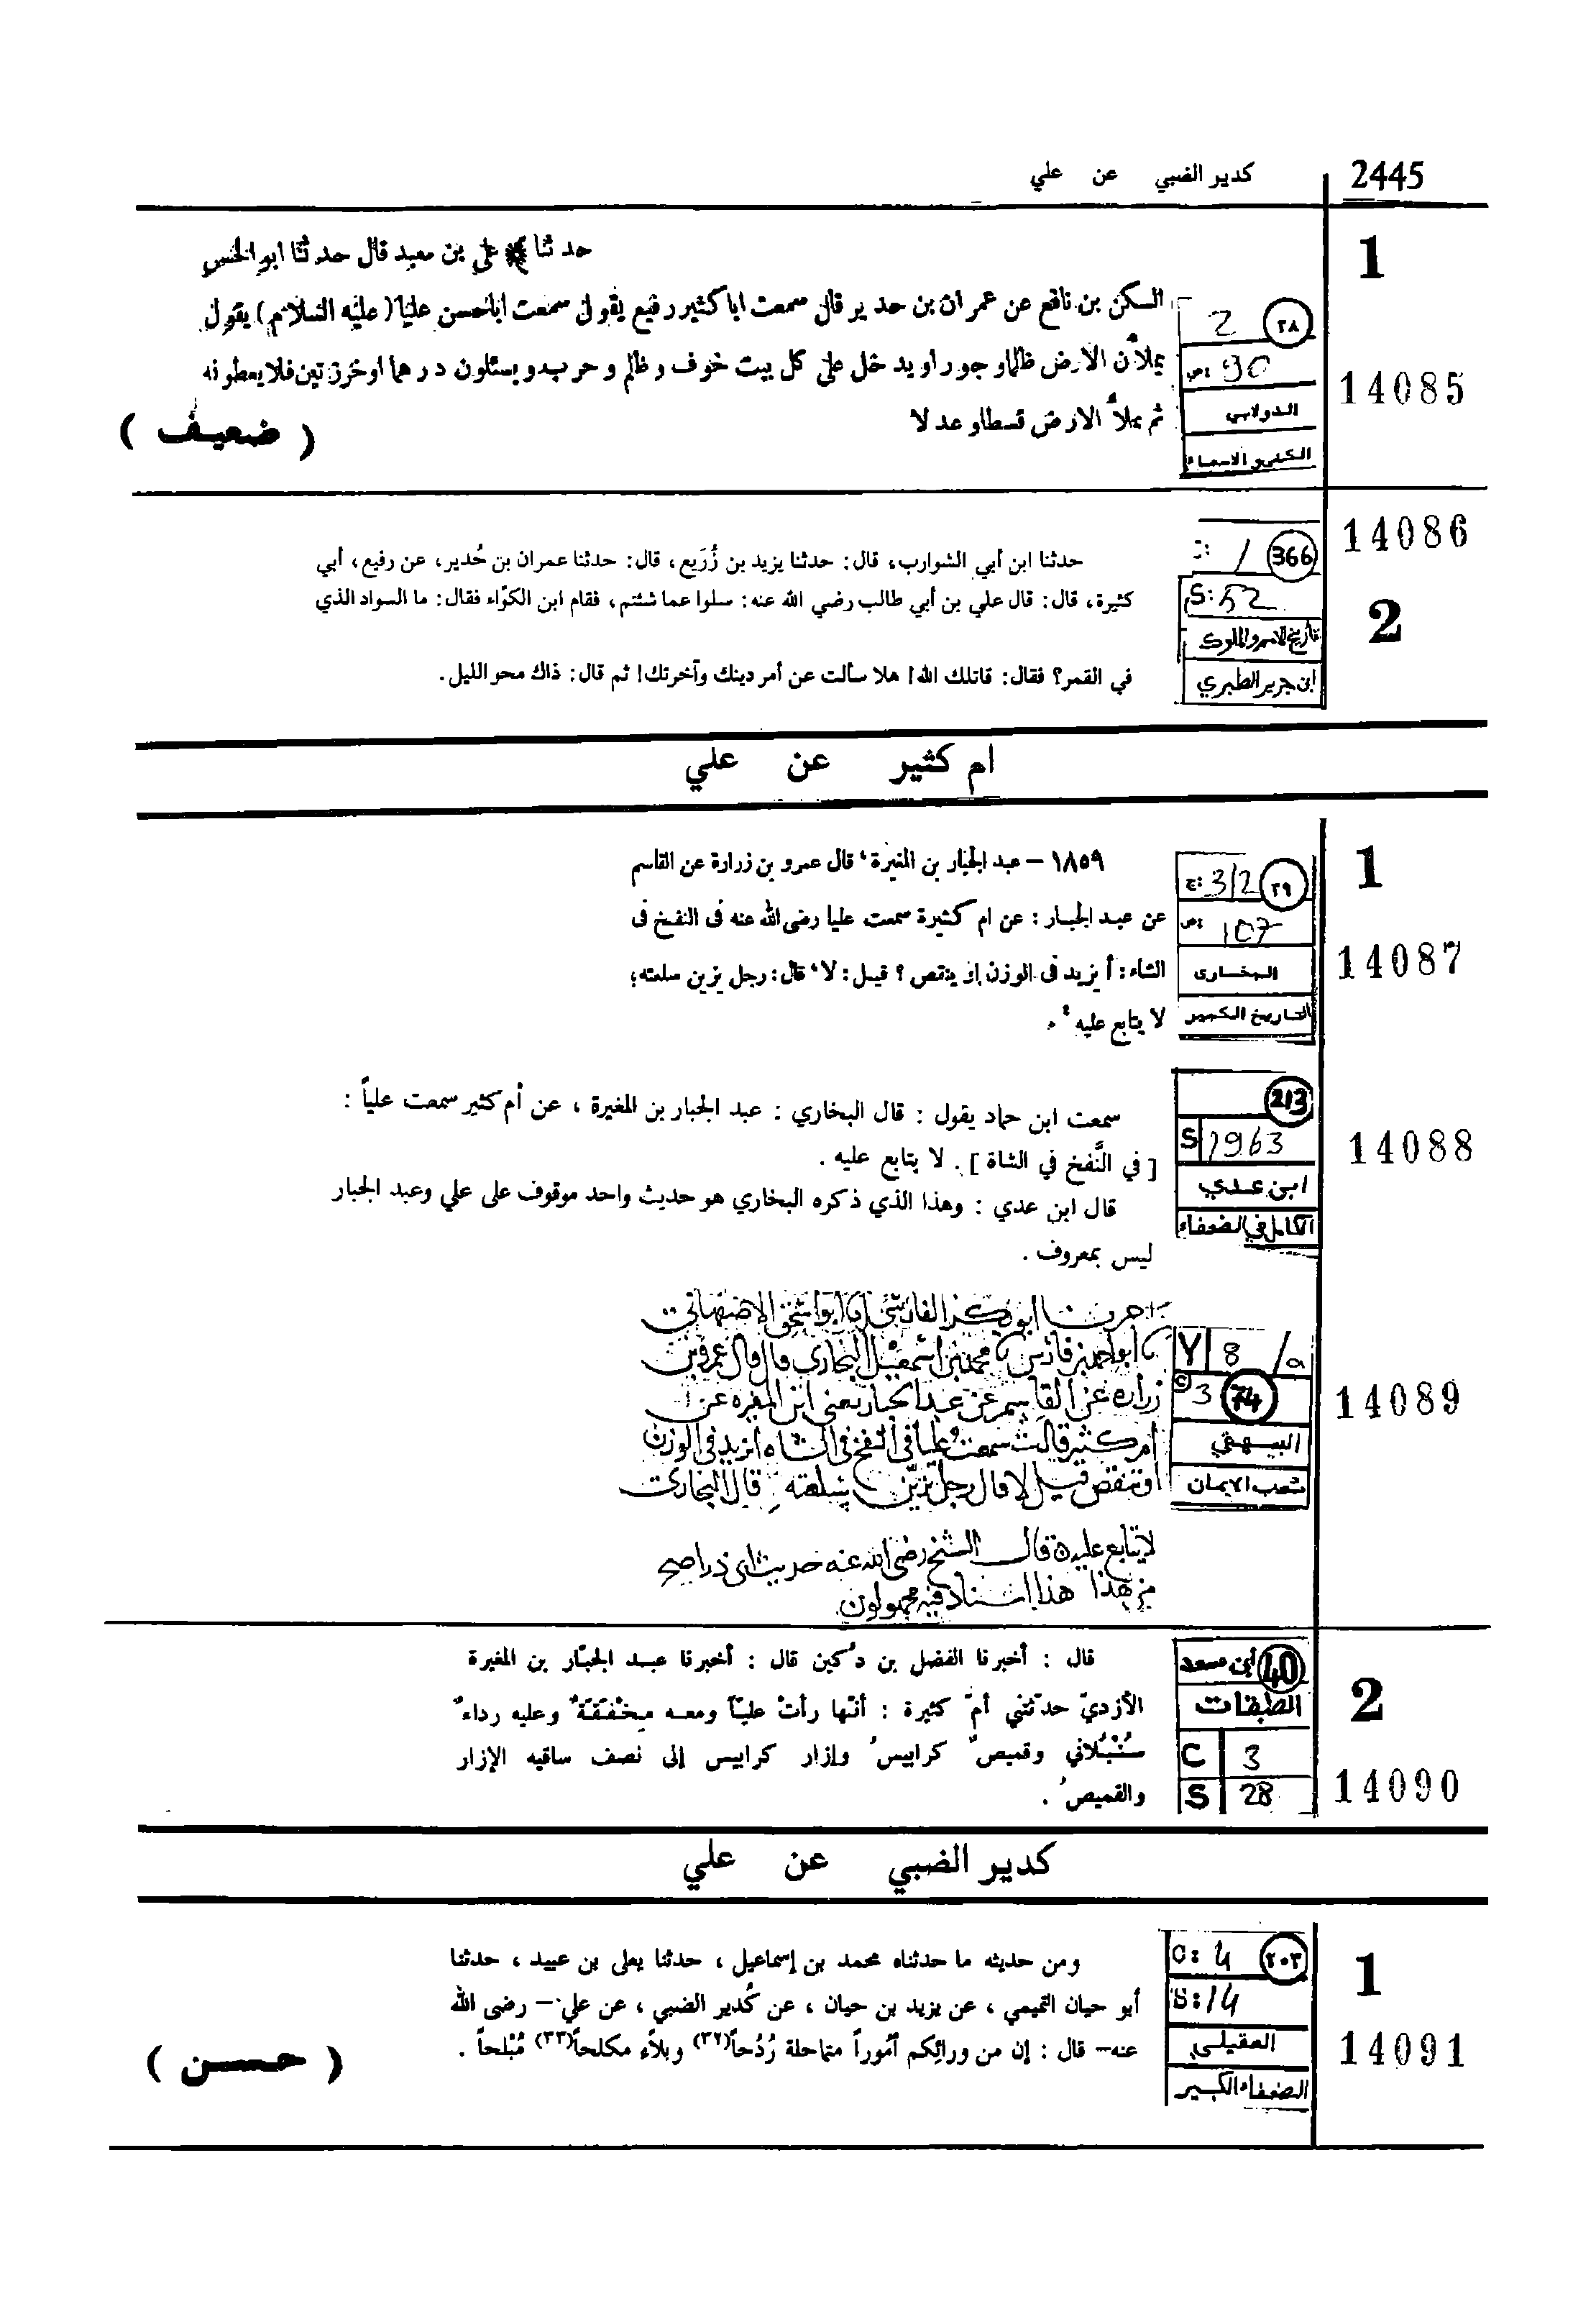 2445
كدير الضبي عن علي
1
14085
٢٨
2
ص: 90
الدولابي
الكنى والاسماء
حدثنا علي بن معبد قال حدثنا ابو الحسن
السكن بن نافع عن عمران بن حدير قال سمعت ابا كثير رفيع يقول سمعت ابا الحسن عليا (عليه السلام) يقول
يملأن الارض ظلما وجورا ويدخل على كل بيت خوف وظلم وحرب ويسئلون درهما او خرزتين فلا يعطونه
ثم يملأ الارض قسطا وعدلا
( ضعيف )
14086
2
366
C: 1
S: 52
تاريخ الامم والملوك
ابن جرير الطبري
حدثنا ابن أبي الشوارب، قال: حدثنا يزيد بن زُرَيع، قال: حدثنا عمران بن حُدير، عن رفيع، أبي
كثيرة، قال: قال علي بن أبي طالب رضي الله عنه: سلوا عما شئتم، فقام ابن الكوّاء فقال: ما السواد الذي
في القمر؟ فقال: قاتلك الله! هلا سألت عن أمر دينك وآخرتك! ثم قال: ذاك محو الليل.
ام كثير عن علي
1
14087
٢٩
ج: 3/2
ص: 107
البخارى
التاريخ الكبير
١٨٥٩ – عبد الجبار بن المغيرة، قال عمرو بن زرارة عن القاسم
عن عبد الجبار: عن ام كثيرة سمعت عليا رضى الله عنه فى النفخ فى
الشاء: أيزيد فى الوزن او ينقص؟ قيل: لا، قال: رجل يزين سلعته؛
لا يتابع عليه.
14088
213
S 1963
ابن عدي
الكامل في الضعفاء
سمعت ابن حماد يقول : قال البخاري : عبد الجبار بن المغيرة ، عن أم كثير سمعت علياً :
[ في النَّفخ في الشاة ] . لا يتابع عليه .
قال ابن عدي : وهذا الذي ذكره البخاري هو حديث واحد موقوف على علي وعبد الجبار
ليس بمعروف .
14089
Y 8 /a
C 3 74
البيهقي
شعب الايمان
اخبرنا ابو بكر الفارسي انا ابو اسحق الاصبهاني
نا ابو احمد بن فارس نا محمد بن اسمعيل البخاري قال قال عمرو بن
زرارة عن القاسم عن عبد الجبار يعني ابن المغيرة عن
ام كثير قالت سمعت عليا في النفخ في الشاه ايزيد في الوزن
او تنقص قيل لا قال رجل يزين سلعته قال البخاري
لا يتابع عليه قال الشيخ رضي الله عنه حديث ابي ذر اصح
من هذا هذا اسناد فيه مجهولون
2
14090
40
ابن سعد
الطبقات
C 3
S 28
قال : أخبرنا الفضل بن دُكين قال : أخبرنا عبد الجبّار بن المغيرة
الأزديّ حدّثتني أمّ كثيرة : أنّها رأتْ عليّاً ومعه مِخْفَقَةٌ وعليه رداءٌ
سُنْبُلاني وقميصٌ كرابيسُ وإزار كرابيس إلى نصف ساقيه الإزار
والقميصُ .
كدير الضبي عن علي
1
14091
٢٠٣
C: 4
S: 14
العقيلي
الضعفاء الكبير
ومن حديثه ما حدثناه محمد بن إسماعيل ، حدثنا يعلى بن عبيد ، حدثنا
أبو حيان التميمي ، عن يزيد بن حيان ، عن كُدير الضبي ، عن علي – رضى الله
عنه – قال : إن من ورائِكم أموراً متماحلة رُدُحاً(٣٢) وبلاءً مكلحاً(٣٣) مُبْلحاً .
( حسن )